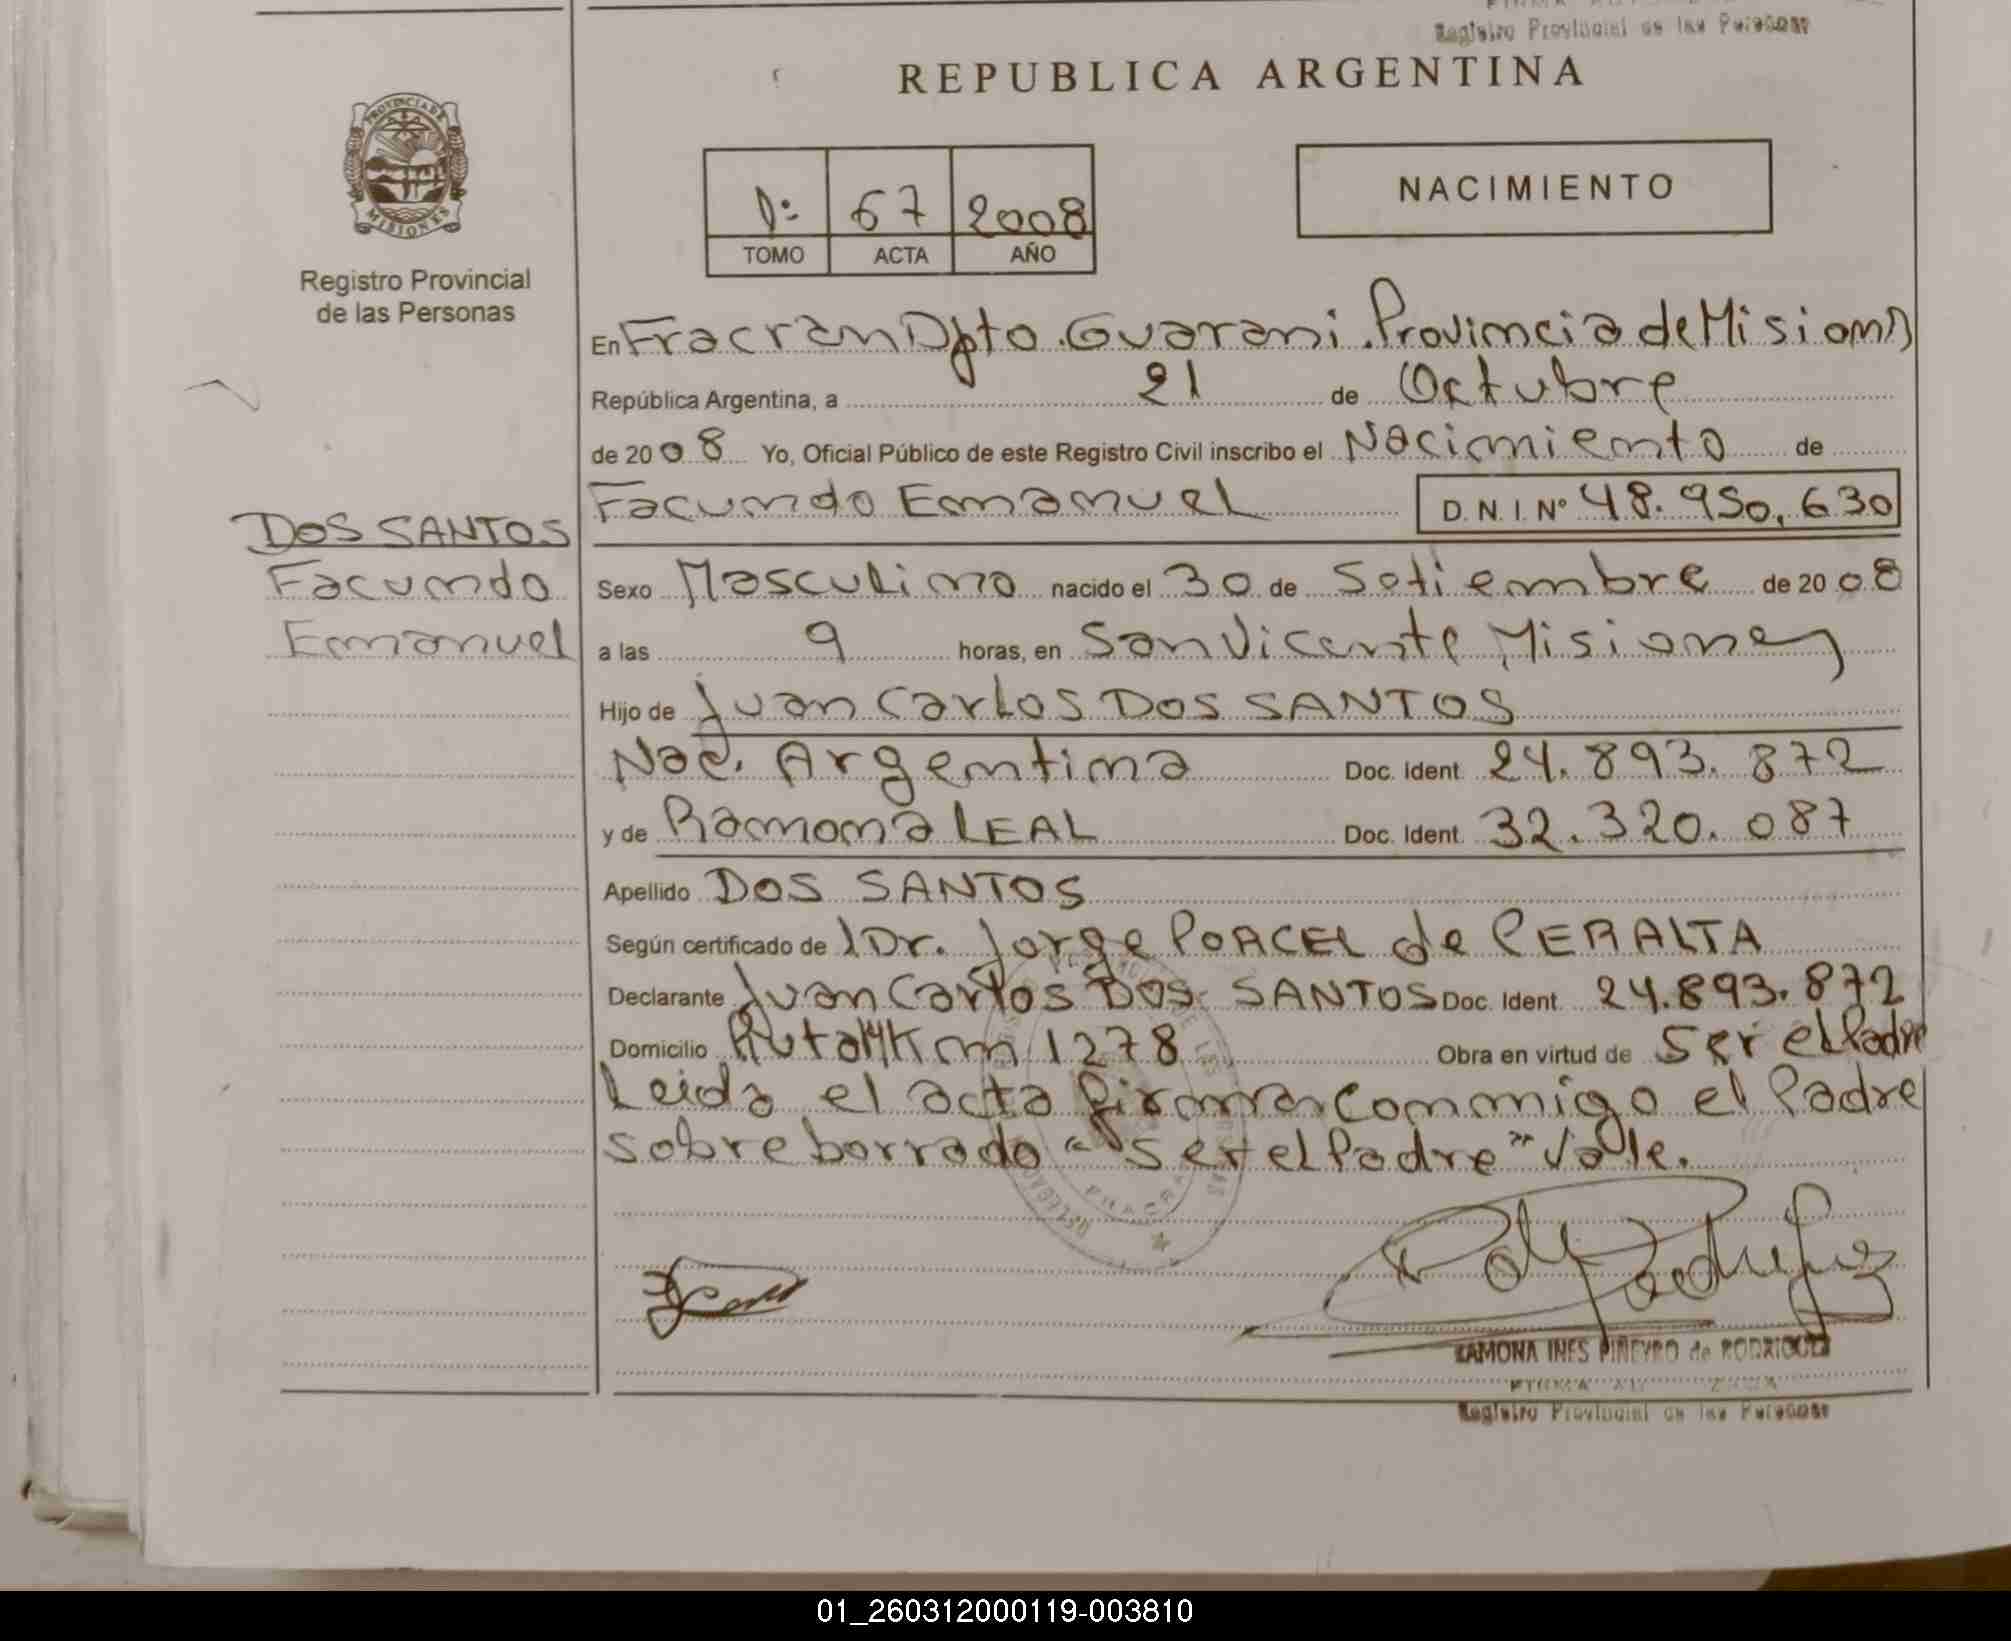 Registro Provincial de las Personas
REPUBLICA ARGENTINA
PROVINCIA DE
MISIONES
Registro Provincial
de las Personas
1º 67 2008
TOMO ACTA AÑO
NACIMIENTO
En Fracran Dpto. Guarani. Provincia de Misiones
República Argentina, a 21 de Octubre
de 2008 Yo, Oficial Público de este Registro Civil inscribo el Nacimiento de
Facundo Emanuel D.N.I. Nº 48.950.630
DOS SANTOS
Facundo
Emanuel
Sexo Masculino nacido el 30 de Setiembre de 2008
a las 9 horas, en San Vicente Misiones
Hijo de Juan Carlos DOS SANTOS
Nac. Argentina Doc. Ident. 24.893.872
y de Ramona LEAL Doc. Ident. 32.320.087
Apellido DOS SANTOS
Según certificado de Dr. Jorge PORCEL de PERALTA
Declarante Juan Carlos DOS SANTOS Doc. Ident. 24.893.872
Domicilio Ruta 14 Km 1278 Obra en virtud de Ser el Padre
Leida el acta firman conmigo el Padre
sobreborrado "Ser el Padre" Vale.
RAMONA INES PIÑEYRO de RODRIGUEZ
Registro Provincial de las Personas
01_260312000119-003810